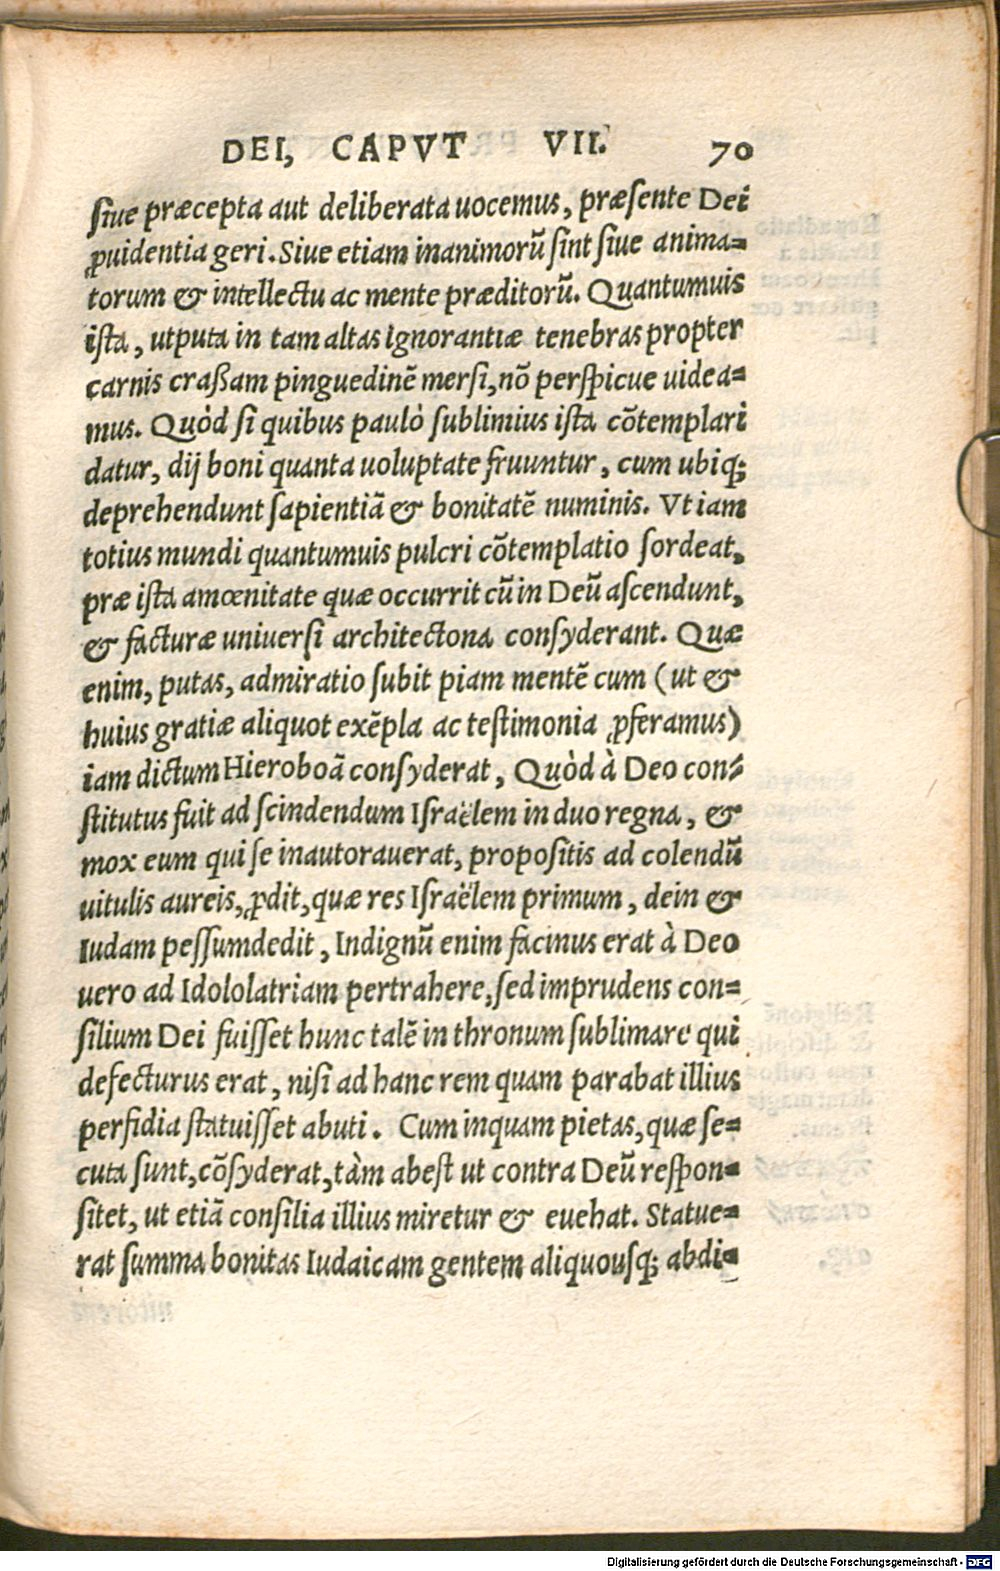 DEI, CAPVT VII. 70
ſiue præcepta aut deliberata uocemus, præſente Dei
ꝓuidentia geri. Siue etiam inanimorũ ſint ſiue anima=
torum & intellectu ac mente præditorũ. Quantumuis
iſta, utputa in tam altas ignorantiæ tenebras propter
carnis craßam pinguedinẽ merſi, nõ perſpicue uidea=
mus. Quòd ſi quibus paulò ſublimius iſta cõtemplari
datur, dij boni quanta uoluptate fruuntur, cum ubiq;
deprehendunt ſapientiã & bonitatẽ numinis. Vt iam
totius mundi quantumuis pulcri cõtemplatio ſordeat,
præ iſta amœnitate quæ occurrit cũ in Deũ aſcendunt,
& facturæ uniuerſi architectona conſyderant. Quæ
enim, putas, admiratio ſubit piam mentẽ cum (ut &
huius gratiæ aliquot exẽpla ac teſtimonia ꝓferamus)
iam dictum Hieroboã conſyderat, Quòd à Deo con=
ſtitutus fuit ad ſcindendum Iſraëlem in duo regna, &
mox eum qui ſe inautorauerat, propoſitis ad colendũ
uitulis aureis, ꝓdit, quæ res Iſraëlem primum, dein &
Iudam peſſumdedit, Indignũ enim facinus erat à Deo
uero ad Idololatriam pertrahere, ſed imprudens con=
ſilium Dei fuiſſet hunc talẽ in thronum ſublimare qui
defecturus erat, niſi ad hanc rem quam parabat illius
perfidia ſtatuiſſet abuti. Cum inquam pietas, quæ ſe=
cuta ſunt, cõſyderat, tàm abeſt ut contra Deũ reſpon=
ſitet, ut etiã conſilia illius miretur & euehat. Statue=
rat ſumma bonitas Iudaicam gentem aliquouſq; abdi=
Digitalisierung gefördert durch die Deutsche Forschungsgemeinschaft - DFG